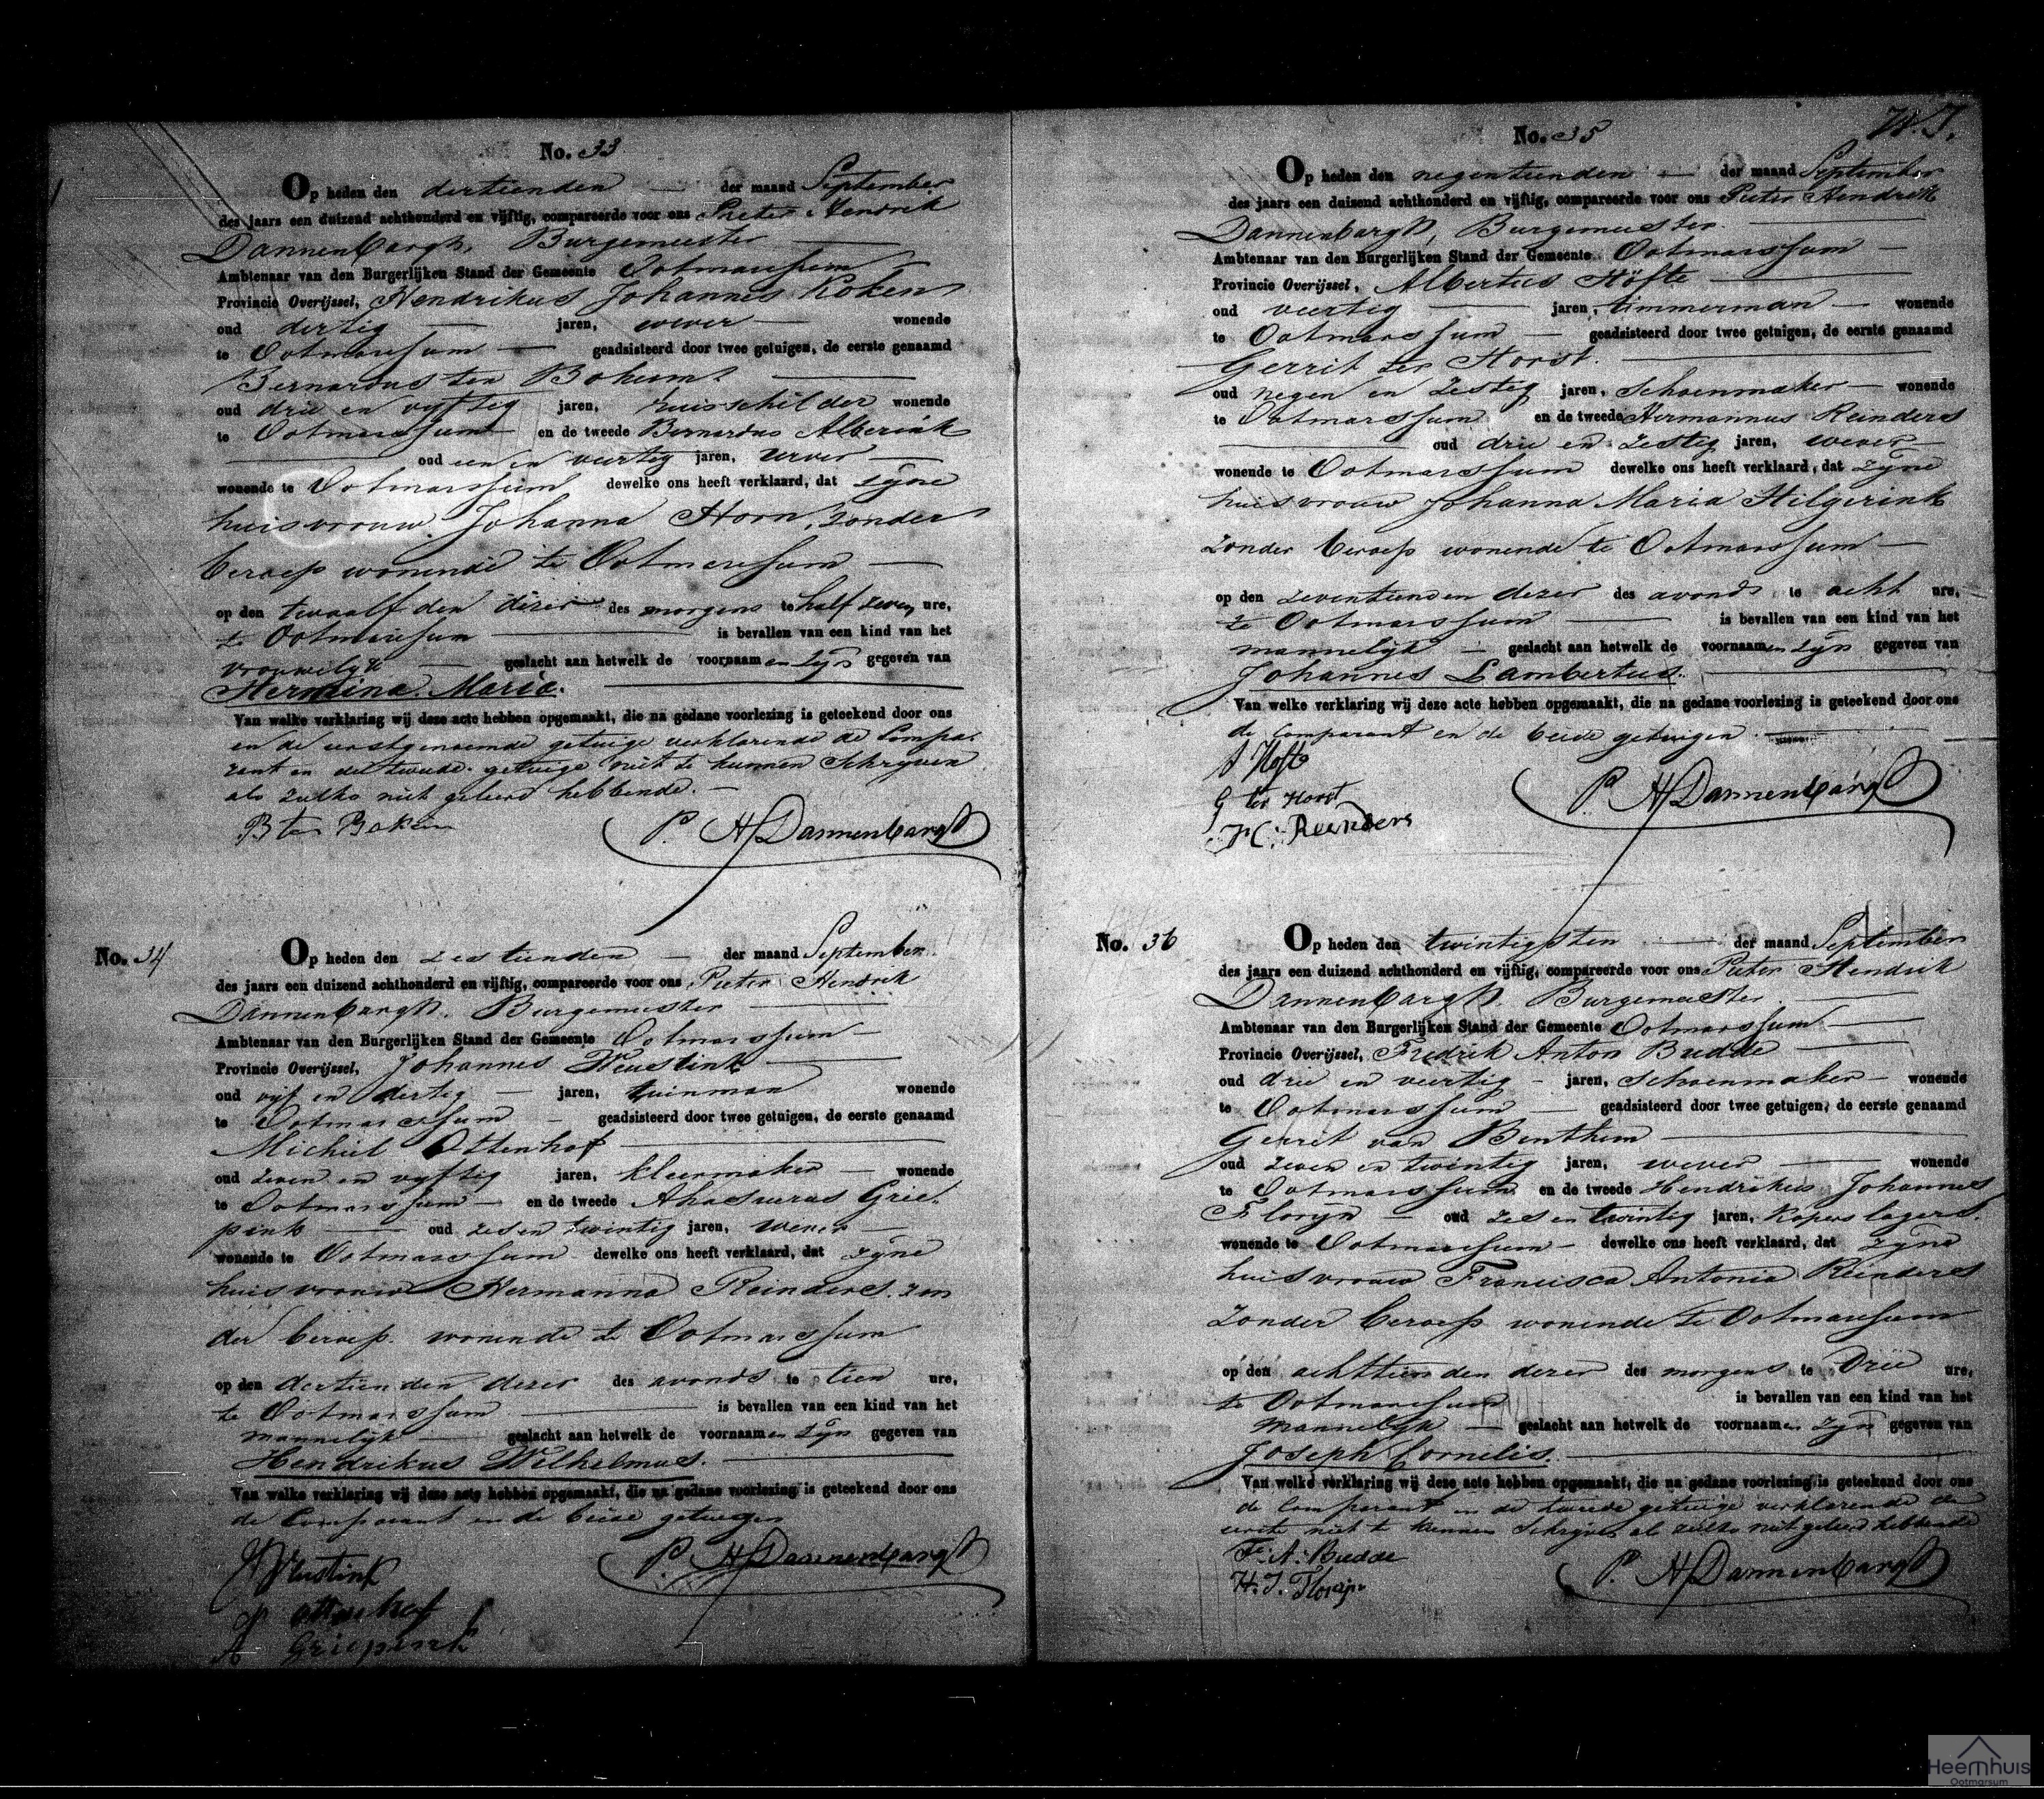 No. 33
Op heden den dertienden der maand September
des jaars een duizend achthonderd en vijftig, compareerde voor ons Pieter Hendrik
Dannenbargh, Burgemeester
Ambtenaar van den Burgerlijken Stand der Gemeente Ootmarssum
Provincie Overijssel, Hendrikus Johannes Koken
oud dertig jaren, wever wonende
te Ootmarssum geadsisteerd door twee getuigen, de eerste genaamd
Bernardus ten
oud drie en vyftig jaren, huisschilder wonende
te Ootmarssum en de tweede Bernardus Alberink
oud een en veertig jaren, wever
wonende te Ootmarssum dewelke ons heeft verklaard, dat zyne
huisvrouw Johanna Horn, zonder
beroep wonende te Ootmarssum
op den twaalfden dezer des morgens te half zeven ure,
te Ootmarssum is bevallen van een kind van het
vrouwelyk geslacht aan hetwelk de voornaamen zyn gegeven van
Hermina Maria.
Van welke verklaring wij deze acte hebben opgemaakt, die na gedane voorlezing is geteekend door ons
en de eerstgenoemde getuige verklarende de Compa-
rant en de tweede getuige niet te kunnen schryven
als zulks niet geleerd hebbende.
B ten
P. H Dannenbargh
No. 34
Op heden den zestienden der maand September
des jaars een duizend achthonderd en vijftig, compareerde voor ons Pieter Hendrik
Dannenbargh, Burgemeester
Ambtenaar van den Burgerlijken Stand der Gemeente Ootmarssum
Provincie Overijssel, Johannes Weustink
oud vyf en dertig jaren, tuinman wonende
te Ootmarssum geadsisteerd door twee getuigen, de eerste genaamd
Michiel Ottenhof
oud zeven en vyftig jaren, kleermaker wonende
te Ootmarssum en de tweede Ahasuerus Grie-
pink oud zes en twintig jaren, wever
wonende te Ootmarssum dewelke ons heeft verklaard, dat zyne
huisvrouw Hermanna Reinders, zon
der beroep wonende te Ootmarssum
op den dertienden dezer des avonds te tien ure,
te Ootmarssum is bevallen van een kind van het
mannelyk geslacht aan hetwelk de voornaamen zyn gegeven van
Hendrikus Wilhelmus.
Van welke verklaring wij deze acte hebben opgemaakt, die na gedane voorlezing is geteekend door ons
de Comparant en de beide getuigen
Weustink
Ottenhof
A Griepink
P. H Dannenbargh
No. 35
Op heden den negentienden der maand September
des jaars een duizend achthonderd en vijftig, compareerde voor ons Pieter Hendrik
Dannenbargh, Burgemeester
Ambtenaar van den Burgerlijken Stand der Gemeente Ootmarssum
Provincie Overijssel, Albertus Höfte
oud veertig jaren, timmerman wonende
te Ootmarssum geadsisteerd door twee getuigen, de eerste genaamd
Gerrit ter Horst
oud negen en zestig jaren, schoenmaker wonende
te Ootmarssum en de tweede Hermannus Reinders
oud drie en zestig jaren, wever
wonende te Ootmarssum dewelke ons heeft verklaard, dat zyne
huisvrouw Johanna Maria Hilgerink
zonder beroep wonende te Ootmarssum
op den zeventienden dezer des avonds te acht ure,
te Ootmarssum is bevallen van een kind van het
mannelyk geslacht aan hetwelk de voornaamen zyn gegeven van
Johannes Lambertus.
Van welke verklaring wij deze acte hebben opgemaakt, die na gedane voorlezing is geteekend door ons
de Comparant en de beide getuigen
A Hofte
G ter Horst
H: Reinders
P. H Dannenbargh
No. 36
Op heden den twintigsten der maand September
des jaars een duizend achthonderd en vijftig, compareerde voor ons Pieter Hendrik
Dannenbargh, Burgemeester
Ambtenaar van den Burgerlijken Stand der Gemeente Ootmarssum
Provincie Overijssel, Fredrik Anton Budde
oud drie en veertig jaren, schoenmaker wonende
te Ootmarssum geadsisteerd door twee getuigen, de eerste genaamd
Gerrit van Benthem
oud zeven en twintig jaren, wever wonende
te Ootmarssum en de tweede Hendrikus Johannes
Floryn oud zes en twintig jaren, koperslager
wonende te Ootmarssum dewelke ons heeft verklaard, dat zyne
huisvrouw Francisca Antonia Reinders
zonder beroep wonende te Ootmarssum
op den achttienden dezer des morgens te drie ure,
te Ootmarssum is bevallen van een kind van het
mannelyk geslacht aan hetwelk de voornaamen zyn gegeven van
Joseph Cornelis.
Van welke verklaring wij deze acte hebben opgemaakt, die na gedane voorlezing is geteekend door ons
de Comparant en de tweede getuige verklarende de
eerste niet te kunnen schryven als zulks niet geleerd hebbende
F: A: Budde
H. J. Florijn
P. H Dannenbargh
Heemhuis
Ootmarsum